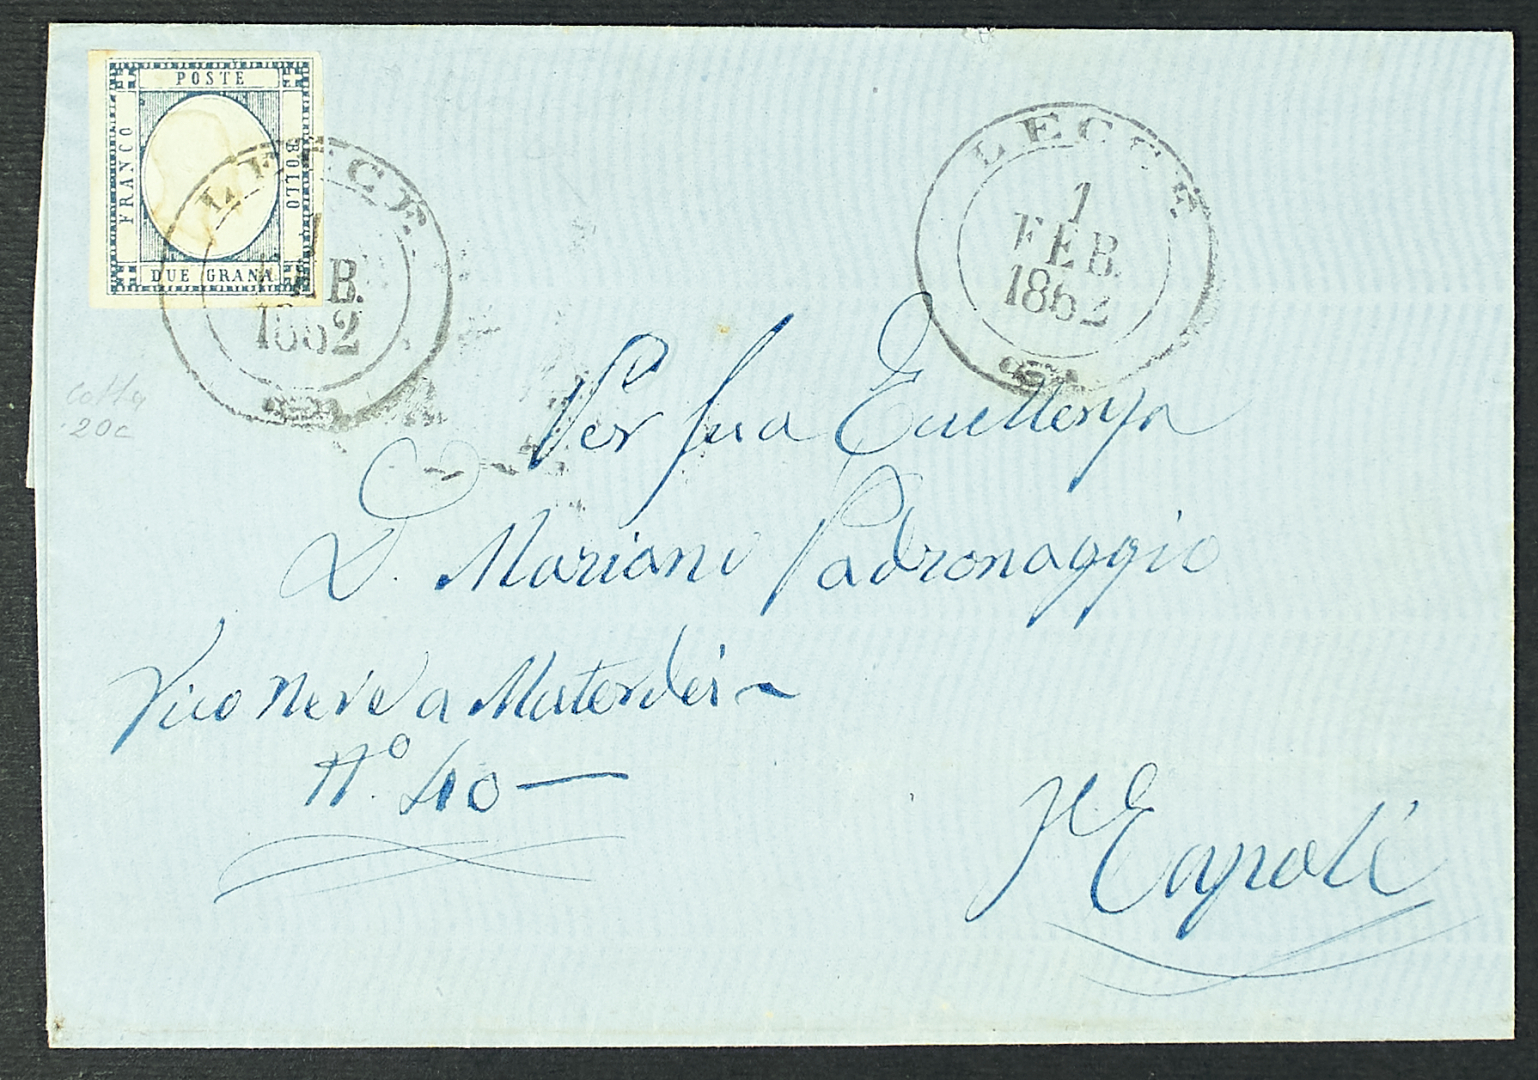 POSTE
FRANCO
BOLLO
DUE GRANA
LECCE
1
FEB.
1862
LECCE
1
FEB.
1862
20c
Per sua Eccellenza
D. Mariano Padronaggio
Vico Neve a Materdei
N.º 40
Napoli